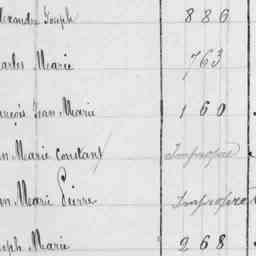 lexandre Joseph 886
harles Marie 763
ançois Jean Marie 160
an Marie Constant Impropre
an Marie Pierre Impropre
seph Marie 268